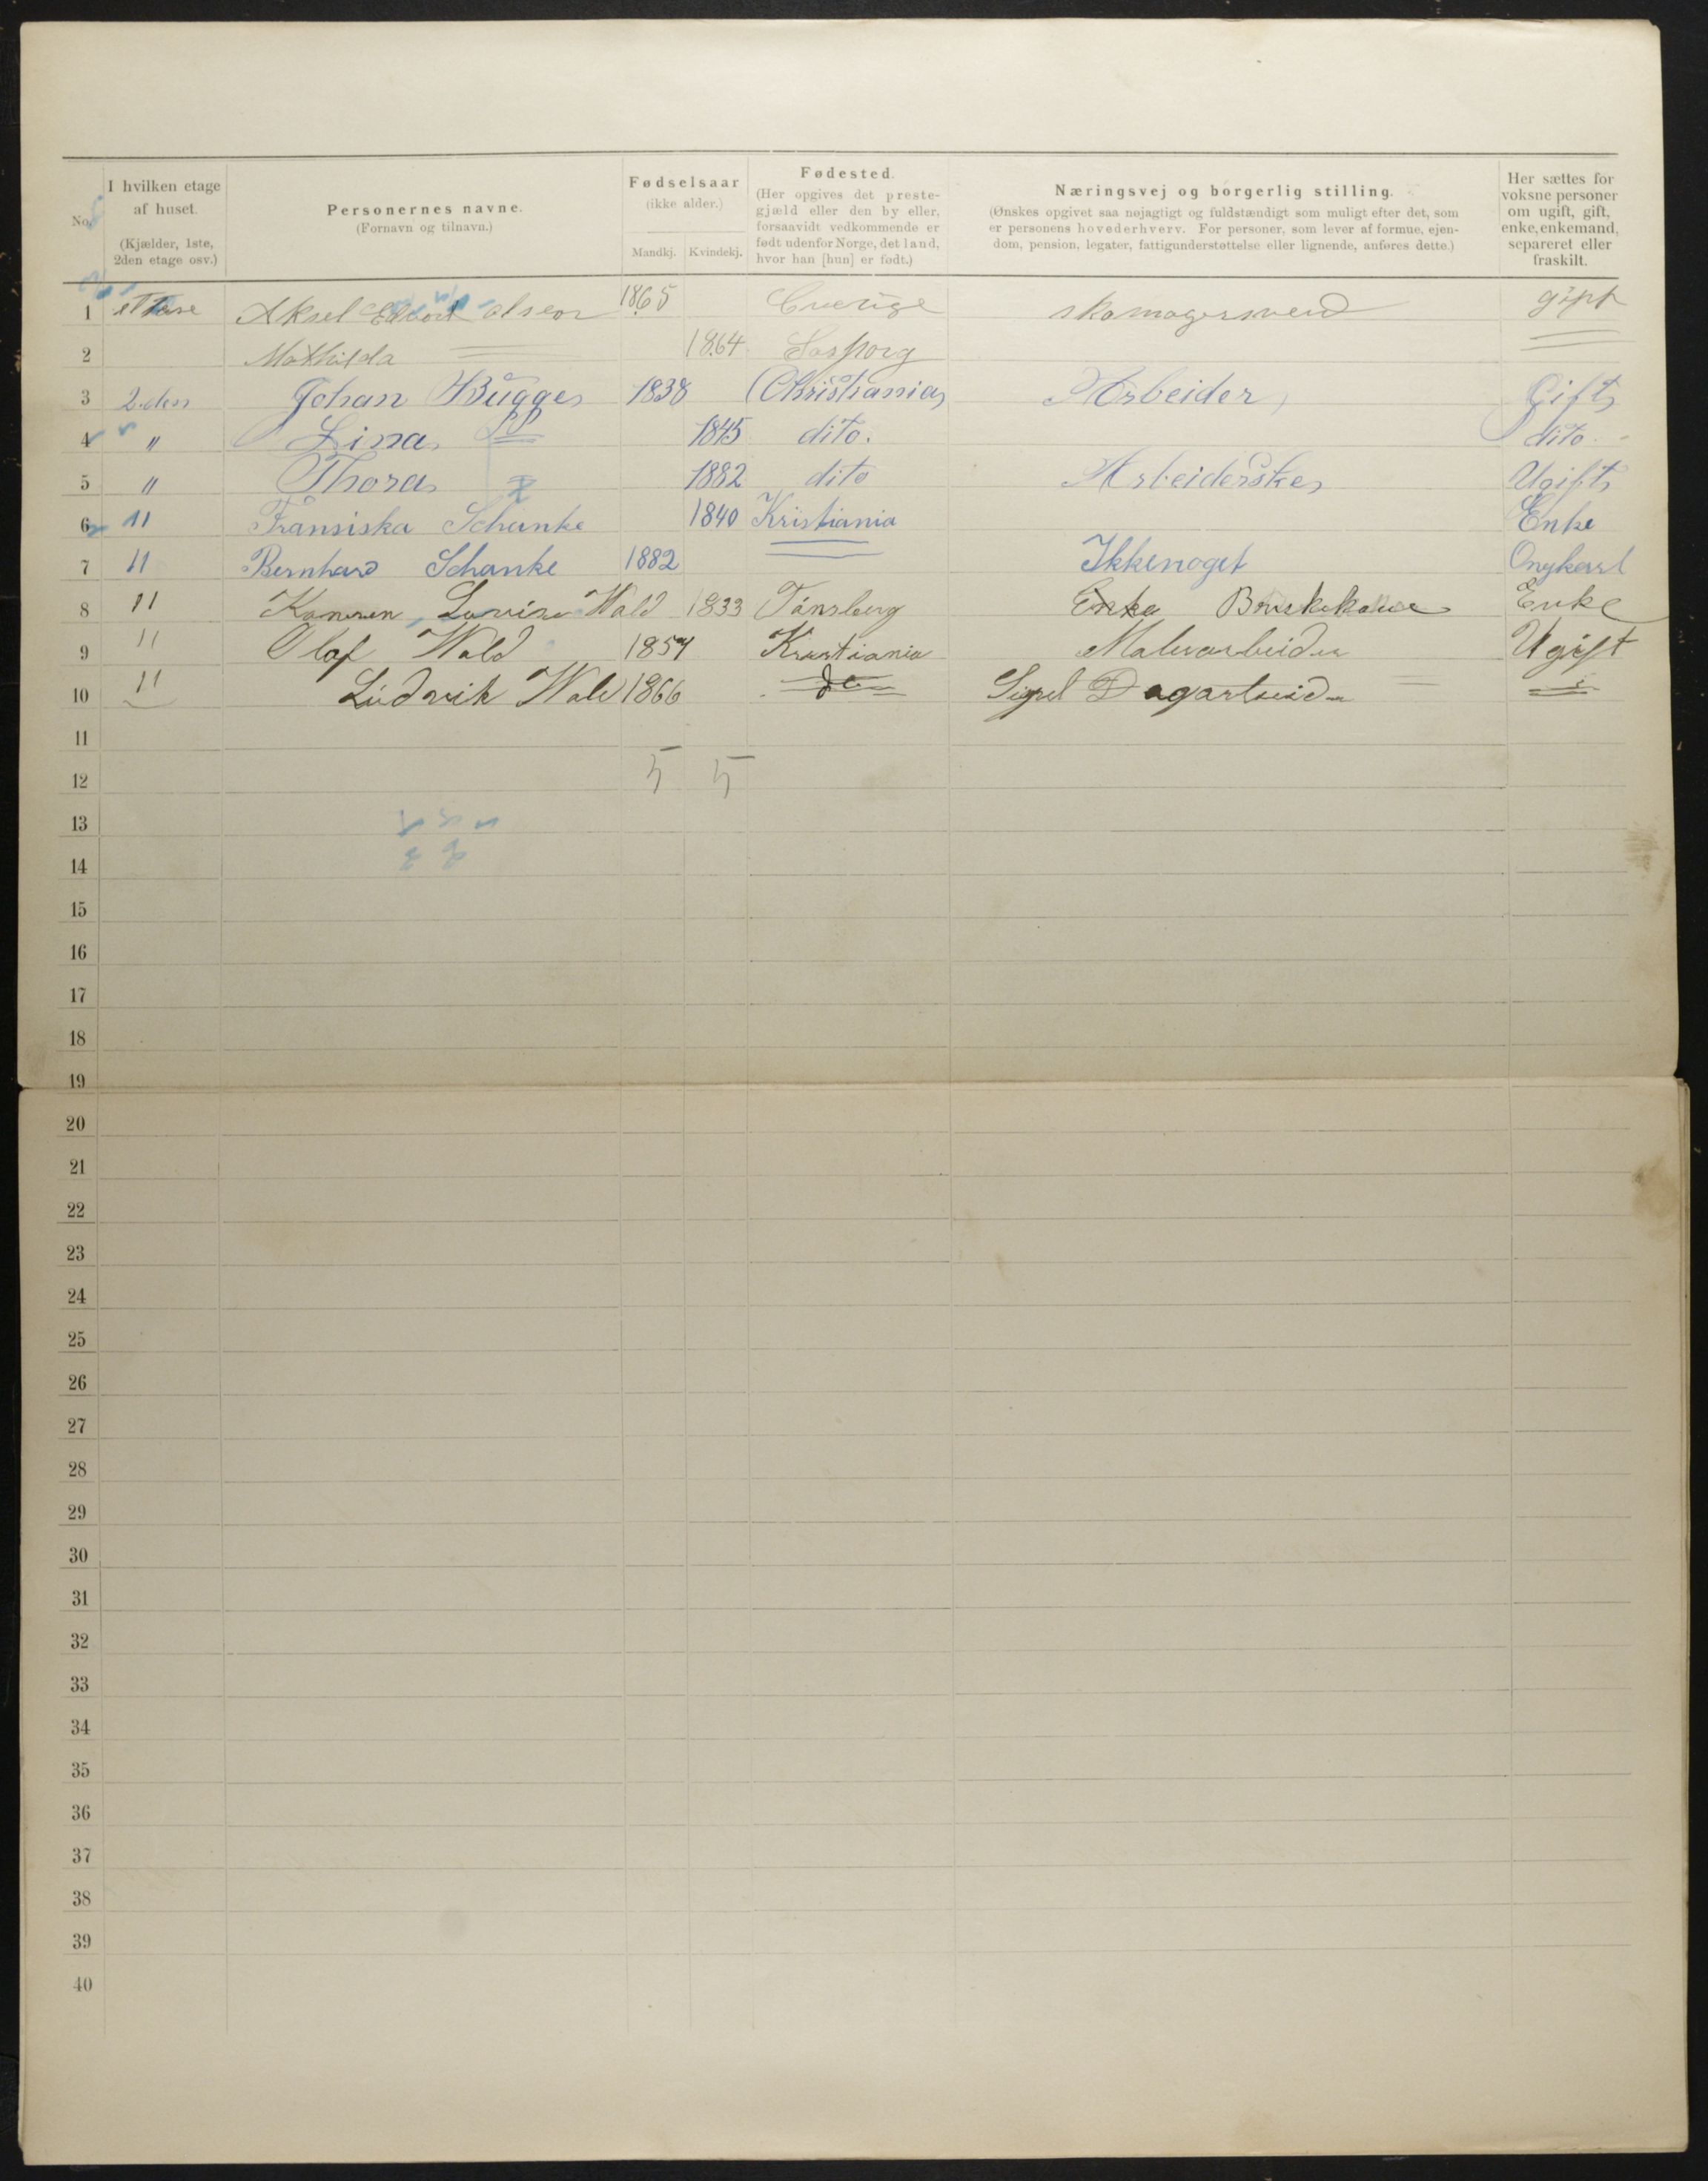 No.
I hvilken etage af huset.
(Kjælder, 1ste, 2den etage osv.)
Personernes navne.
(Fornavn og tilnavn.)
Fødselsaar
(ikke alder.)
Mandkj. Kvindekj.
Fødested.
(Her opgives det preste-
gjæld eller den by eller,
forsaavidt vedkommende er
født udenfor Norge, det land,
hvor han [hun] er født.)
Næringsvej og borgerlig stilling.
(Ønskes opgivet saa nøjagtigt og fuldstændigt som muligt efter det, som
er personens hovederhverv. For personer, som lever af formue, ejen-
dom, pension, legater, fattigunderstøttelse eller lignende, anføres dette.)
Her sættes for
voksne personer
om ugift, gift,
enke, enkemand,
separeret eller
fraskilt.
1 Aksel olseon 1865 Cverige skomagersvend gipt
2 Mathilda 1864 Sasporg
3 2.den Johan Bugge 1838 Christiania Arbeider Gift
4 " Lina 1845 dito. dito
5 " Thora 1882 dito Arbeiderske Ugift
6 " Fransiska Schanke 1840 Kristiania Enke
7 " Bernhard Schanke 1882 Ikkenoget Ongkarl
8 " Lovise Wald 1833 Tónsberg Enke
9 " Olaf Wald Kristiania Malerarbeider Ugift
10 " Ludvik Wald 1866 do Dagarbeider
11
12 5 5
13
14
15
16
17
18
19
20
21
22
23
24
25
26
27
28
29
30
31
32
33
34
35
36
37
38
39
40